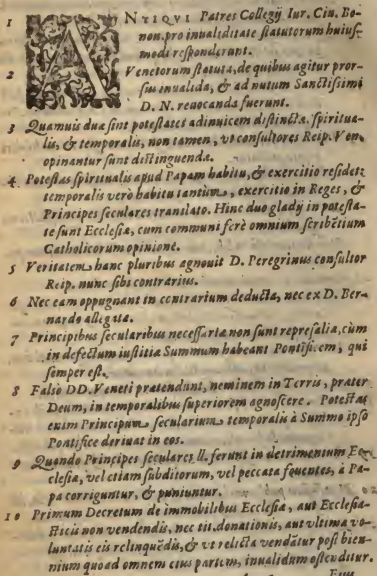 1 ANTIQVI Patres Collegij Iur. Ciu. Bo-
non. pro inualiditate statutorum huius-
modi responderunt.
2 Venetorum statuta, de quibus agitur pror-
sus inualida, & ad nutum Sanctissimi
D. N. reuocanda fuerunt.
3 Quamuis duæ sint potestates adinuicem distinctæ, spiritua-
lis, & temporalis, non tamen, vt consultores Reip. Ven.
opinantur sunt distinguendæ.
4 Potestas spiritualis apud Papam habitu, & exercitio residet;
temporalis verò habitu tantum, exercitio in Reges, &
Principes seculares translato. Hinc duo gladij in potesta-
te sunt Ecclesiæ, cum communi ferè omnium scribētium
Catholicorum opinione.
5 Veritatem hanc pluribus agnouit D. Peregrinus consultor
Reip. nunc sibi contrarius.
6 Nec eam oppugnant in contrarium deducta, nec ex D. Ber-
nardo allegata.
7 Principibus secularibus necessaria non sunt represalia, cùm
in defectum iustitiæ Summum habeant Pontificem, qui
semper est.
8 Falsò DD. Veneti prætendunt, neminem in Terris, præter
Deum, in temporalibus superiorem agnoscere. Potestas
enim Principum secularium temporalis à Summo ipso
Pontifice deriuat in eos.
9 Quando Principes seculares ll. ferunt in detrimentum Ec-
clesiæ, vel etiam subditorum, vel peccata fouentes, à Pa-
pa corriguntur, & puniuntur.
10 Primum Decretum de immobilibus Ecclesiæ, aut Ecclesia-
sticis non vendendis, nec tit. donationis, aut vltimæ vo-
luntatis eis relinquēdis, & vt relicta vendātur post bien-
nium quoad omnem eius partem, inualidum ostenditur.